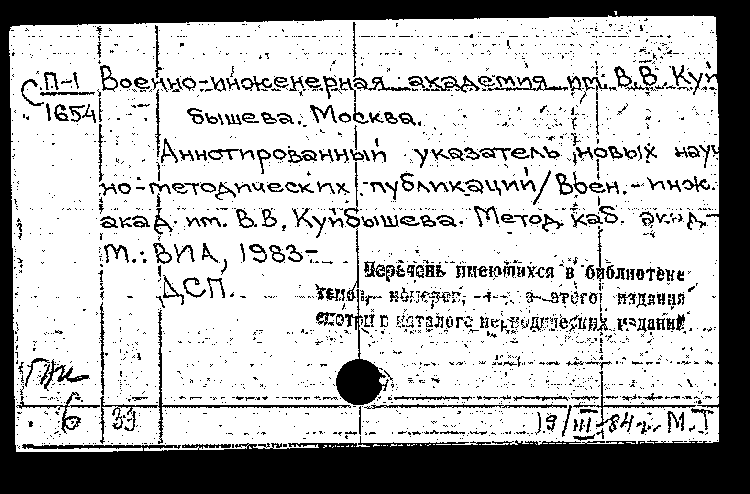 С П-1 Военно-инженерная академия им. В.В. Куй
1654 бышева. Москва.
Аннотированный указатель новых науч
но-методических публикаций/Воен.-инж.
акад. им. В.В. Куйбышева. Метод. каб. акад.-
М.: ВИА, 1983-
ДСП.
Перечень имеющихся в библиотеке
томов, номеров, этого издания
смотри в каталоге периодических изданий
6 33 19/III-84г. М.I